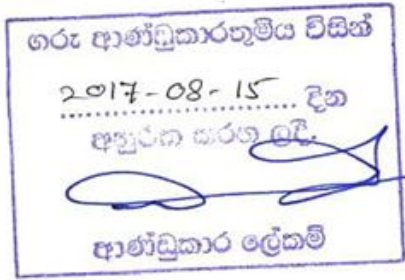 ගරු ආණ්ඩුකාරතුමිය විසින්
2017-08-15 දින
අනුරක්ත කරන ලදි.
ආණ්ඩුකාර ලේකම්